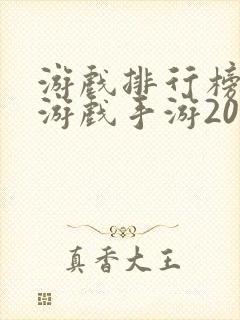 游戏排行榜
游戏手游20
真香大王